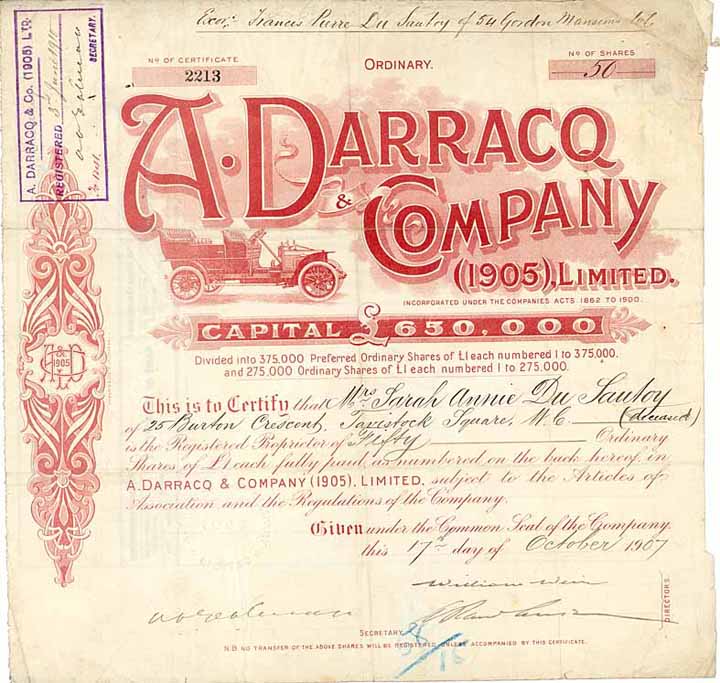 Exor: Francis Pierre Du Sautoy of 54 Gordon Mansions
A. DARRACQ & Co. (1905) LTD.
REGISTERED 3rd June 1910
SECRETARY.
No OF CERTIFICATE
2213
ORDINARY.
No OF SHARES
50
A. DARRACQ
& COMPANY
(1905), LIMITED.
INCORPORATED UNDER THE COMPANIES ACTS 1862 TO 1900.
CAPITAL £650,000
Divided into 375,000 Preferred Ordinary Shares of £1 each numbered 1 to 375,000.
and 275,000 Ordinary Shares of £1 each numbered 1 to 275,000.
1905
This is to Certify that Mrs Sarah Annie Du Sautoy
of 25 Burton Crescent, Tavistock Square, W.C. (deceased)
is the Registered Proprietor of Fifty Ordinary
Shares of £1 each fully paid, as numbered on the back hereof, in
A. DARRACQ & COMPANY (1905), LIMITED, subject to the Articles of
Association and the Regulations of the Company.
Given under the Common Seal of the Company.
this 17th day of October 1907
William Weir
DIRECTORS.
SECRETARY
N.B. NO TRANSFER OF THE ABOVE SHARES WILL BE REGISTERED UNLESS ACCOMPANIED BY THIS CERTIFICATE.